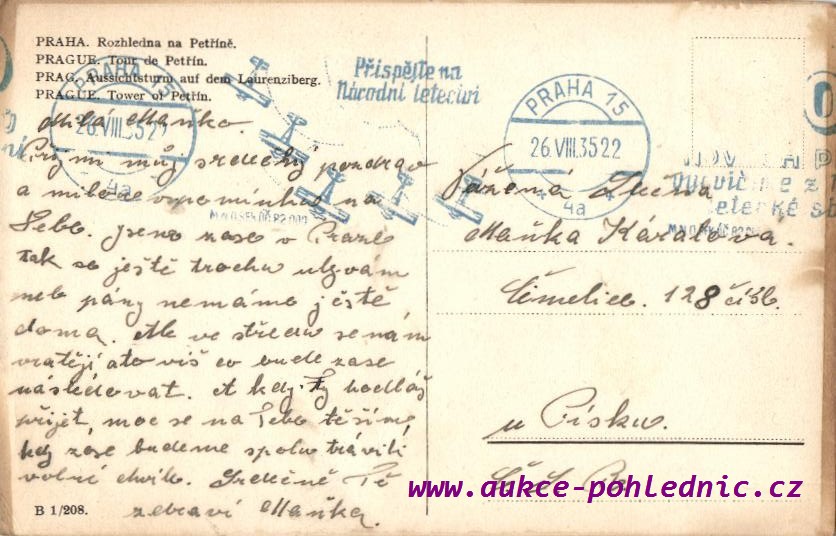 PRAHA. Rozhledna na Petříně.
PRAGUE. Tour de Petřín.
PRAG. Aussichtsturm auf dem Laurenziberg.
PRAGUE. Tower of Petřín.
PRAHA 15
26.VIII.35 22
4a
Přispějte na
Národní letectví
PRAHA 15
26.VIII.35 22
4a
Milá Maňko.
Přijmi můj srdečný pozdrav
a milé vzpomínky na
Tebe. Jsem zase v Praze
tak se ještě trochu
neb pány nemáme ještě
doma. Ale ve středu se nám
vratějí a to víš co bude zase
následovat. A kdy Ty hodláš
přijet, moc se na Tebe těším,
kdy zase budeme spolu tráviti
volné chvíle. Srdečně Tě
zdraví Maňka.
Vážená Slečna
Maňka Káralová.
Čimelice. 128 čísl.
u Písku.
B 1/208.
www.aukce-pohlednic.cz